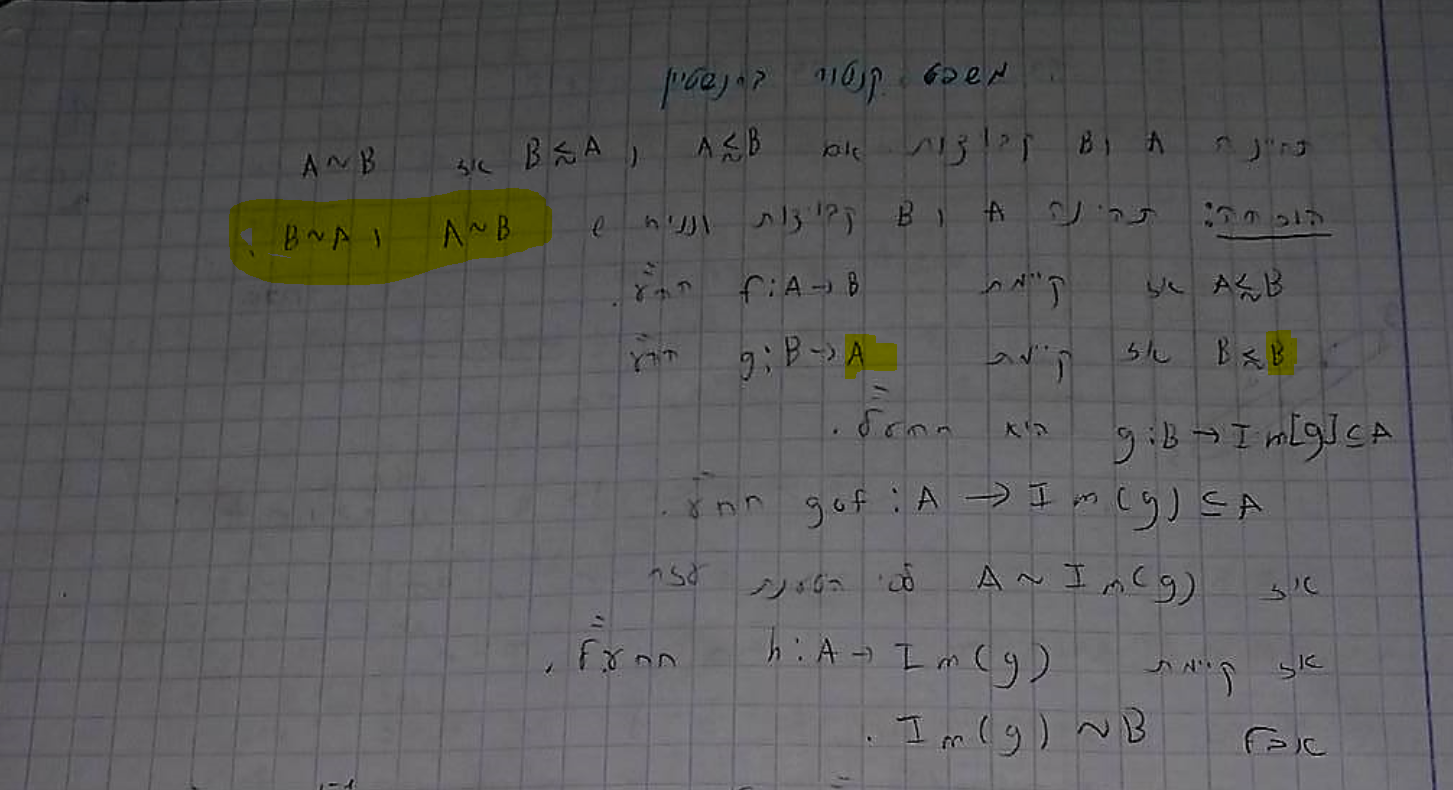 משפט קנטור ברנשטיין
תהינה A ו B קבוצות אם A≲B ו B≲A אז A~B
הוכחה: תהינה A ו B קבוצות ונניח ש A~B ו B~A.
A≲B אז קיימת f:A→B חח"ע.
B≲B אז קיימת g:B→A חח"ע
g:B→Im[g]⊆A היא
g∘f:A→Im(g)⊆A חח"ע.
אז A~Im(g) לפי הטענת
אז קיימת h:A→Im(g)
אבל Im(g)~B.